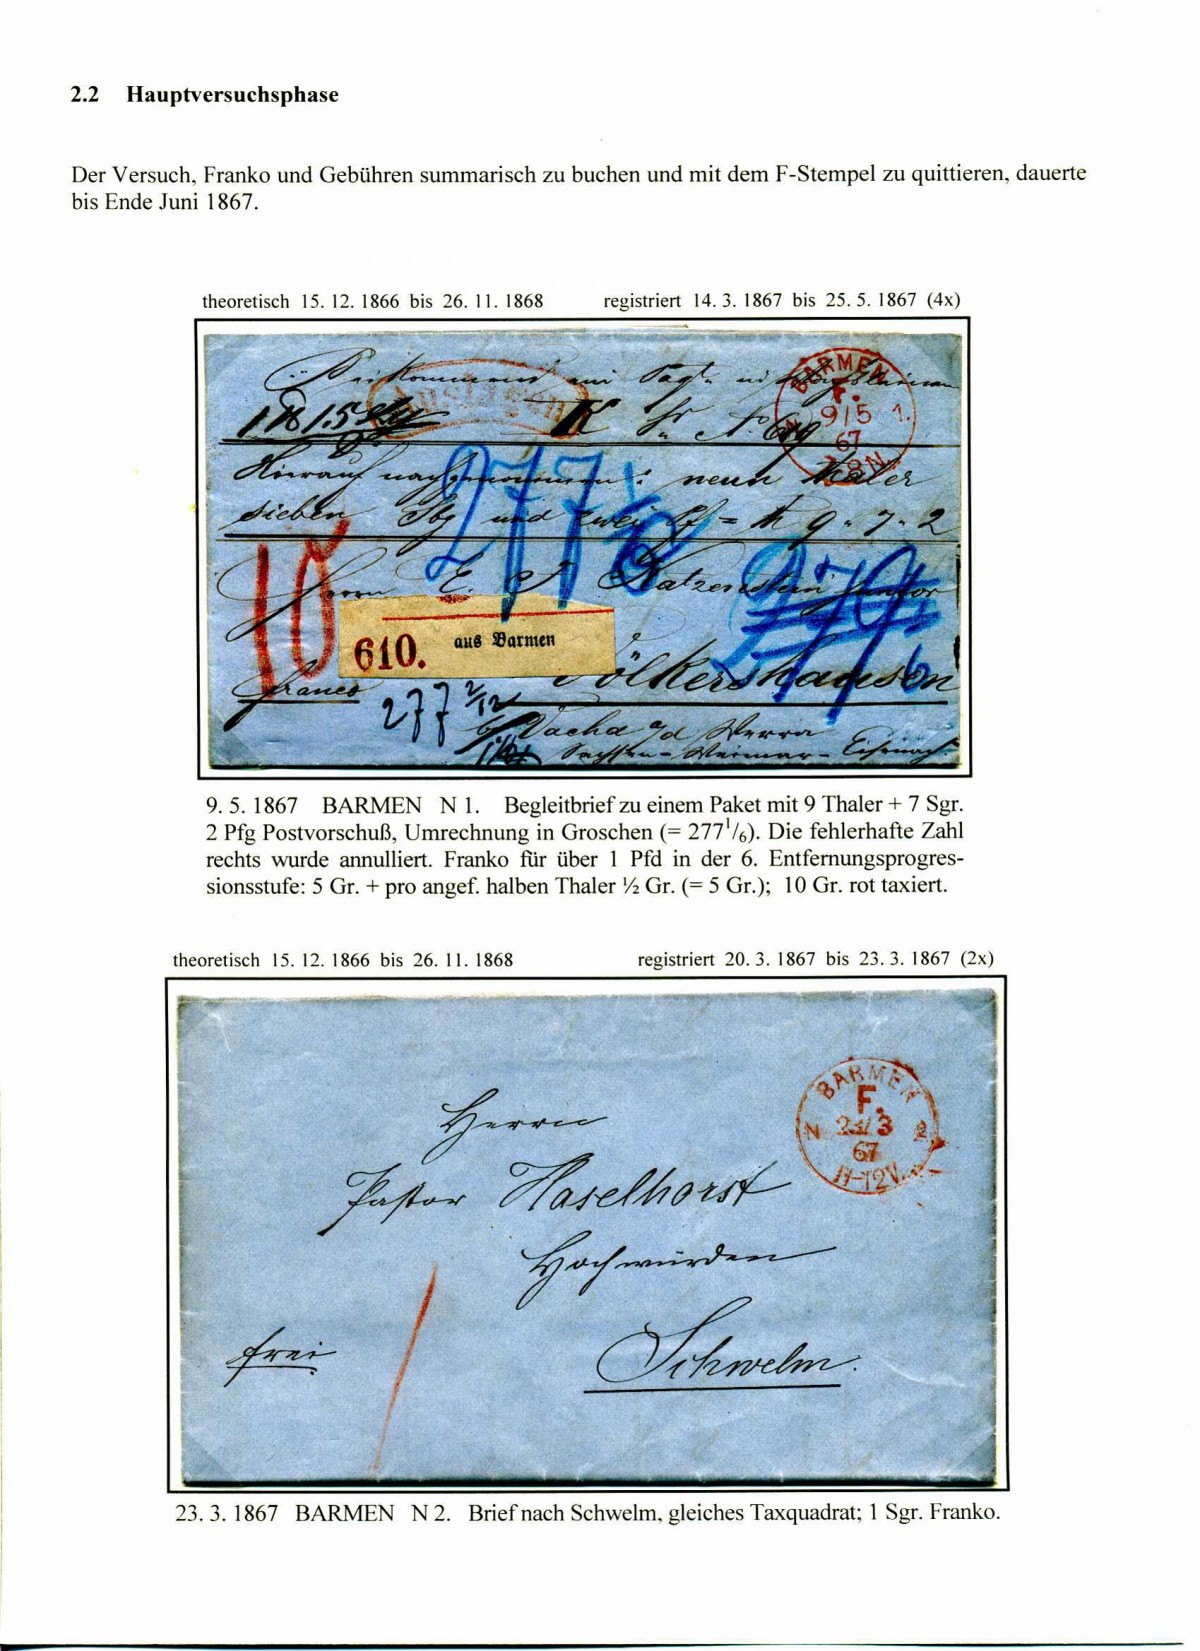 2.2 Hauptversuchsphase
Der Versuch, Franko und Gebühren summarisch zu buchen und mit dem F-Stempel zu quittieren, dauerte
bis Ende Juni 1867.
theoretisch 15. 12. 1866 bis 26. 11. 1868 registriert 14. 3. 1867 bis 25. 5. 1867 (4x)
BARMEN
F.
N 9/5 1.
67
7-8N.
Auslagen
No 619
Hierauf nachgenommen: neun Thaler
sieben Sbg und zwei Pf = th 9 " 7 " 2
277 1/6
Herrn E. & J. Katzenstein junior
10
610. aus Barmen
Völkershausen
franco
277 2/12
b/ Vacha a/d Werra
Sachsen-Weimar-Eisenach
9. 5. 1867 BARMEN N 1. Begleitbrief zu einem Paket mit 9 Thaler + 7 Sgr.
2 Pfg Postvorschuß, Umrechnung in Groschen (= 277 1/6). Die fehlerhafte Zahl
rechts wurde annulliert. Franko für über 1 Pfd in der 6. Entfernungsprogres-
sionsstufe: 5 Gr. + pro angef. halben Thaler ½ Gr. (= 5 Gr.); 10 Gr. rot taxiert.
theoretisch 15. 12. 1866 bis 26. 11. 1868 registriert 20. 3. 1867 bis 23. 3. 1867 (2x)
BARMEN
F.
N 23/3 2
67
11-12V.
Herrn
Pastor Haselhorst
Hochwürden
frei
1
Schwelm.
23. 3. 1867 BARMEN N 2. Brief nach Schwelm, gleiches Taxquadrat; 1 Sgr. Franko.